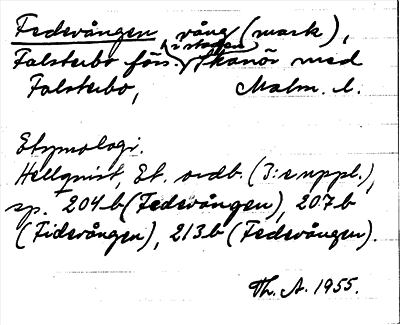 Fedevången, vång (mark),
Falsterbo förs. (i staden Skanör med
Falsterbo, Malm. l.
Etymologi.
Hellquist, Et. ordb. (3:e uppl.),
sp. 204 b (Fedevången), 207 b
(Fidevången), 213 b (Fedevången).
Th. A. 1955.